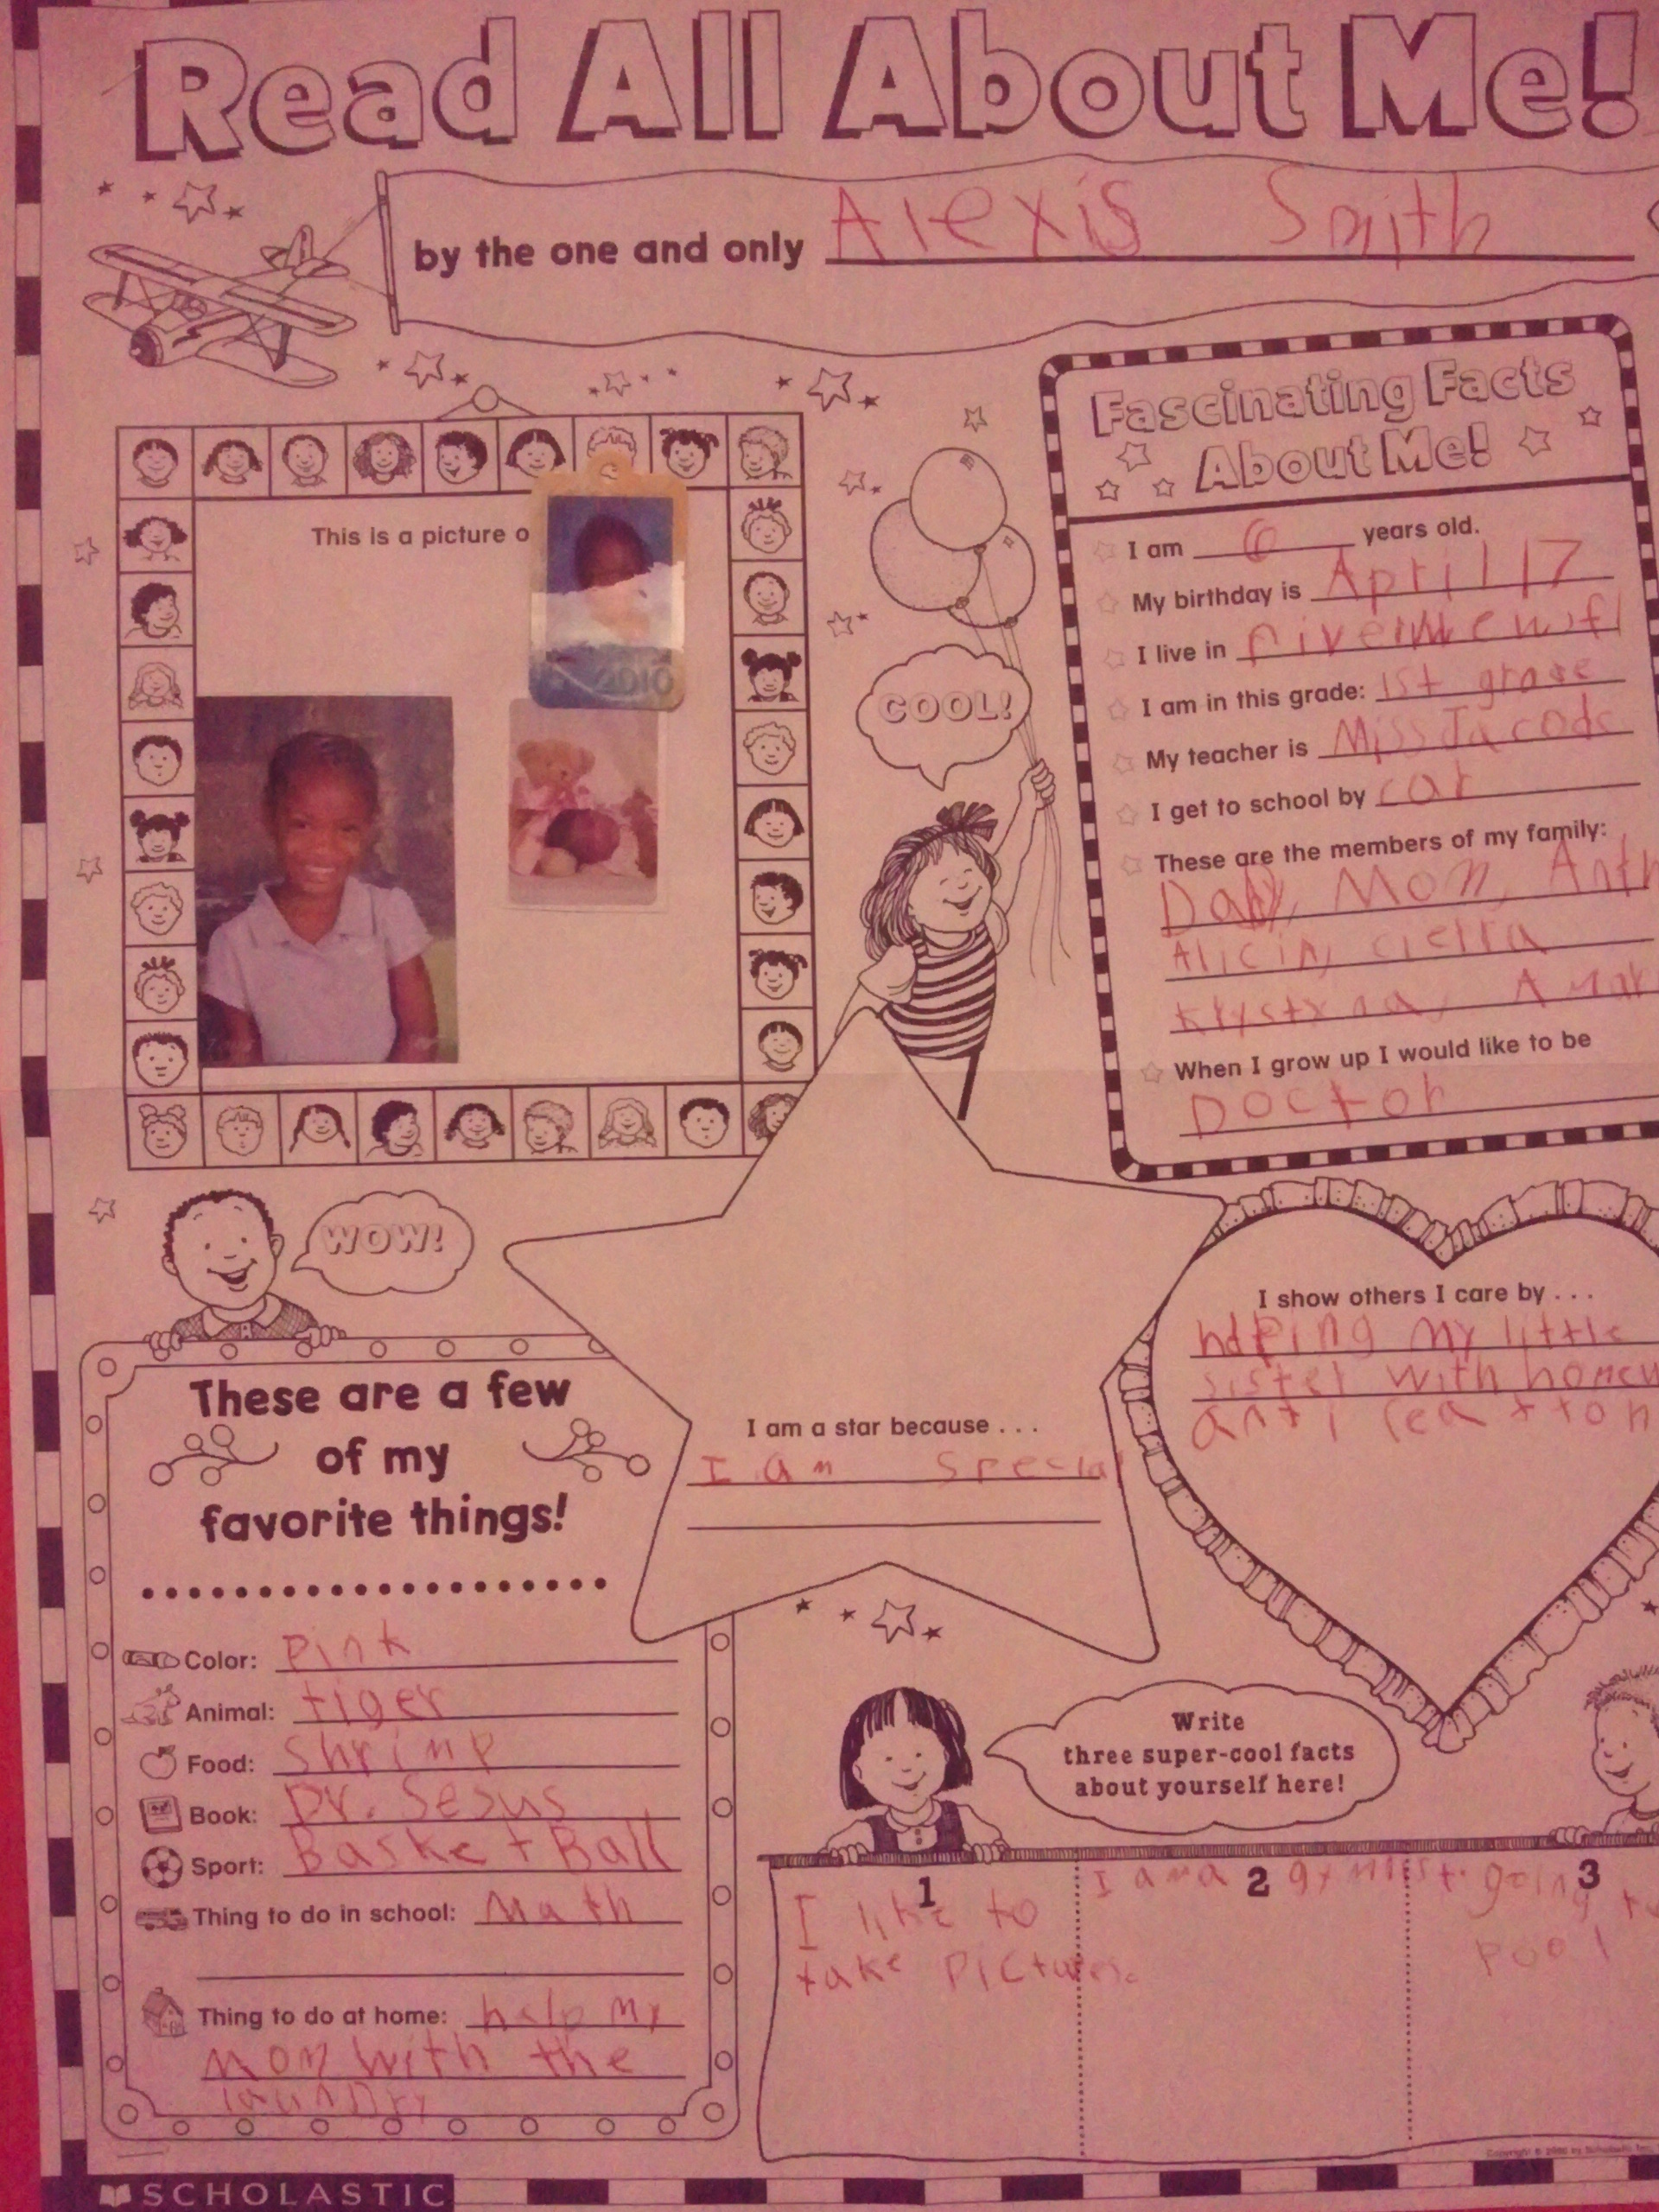 Read All About Me!
by the one and only Alexis Smith
This is a picture o
2010
COOL!
Fascinating Facts
About Me!
I am 6 years old.
My birthday is April 17
I live in
I am in this grade: 1st grade
My teacher is Miss
I get to school by car
These are the members of my family:
Dady, Mom, Anth
Alicia, cierra
Krystyna, Amar
When I grow up I would like to be
Doctor
WOW!
I show others I care by . . .
helping my little
sister with homew
I am a star because . . .
I am special
These are a few
of my
favorite things!
Color: Pink
Animal: tiger
Food: Shrimp
Book: Dr. Sesus
Sport: Basket Ball
Thing to do in school: Math
Thing to do at home: help my
mom with the
laundry
Write
three super-cool facts
about yourself here!
1
I like to
take Pictures.
2
I am a gymnist.
3
going to
pool
SCHOLASTIC